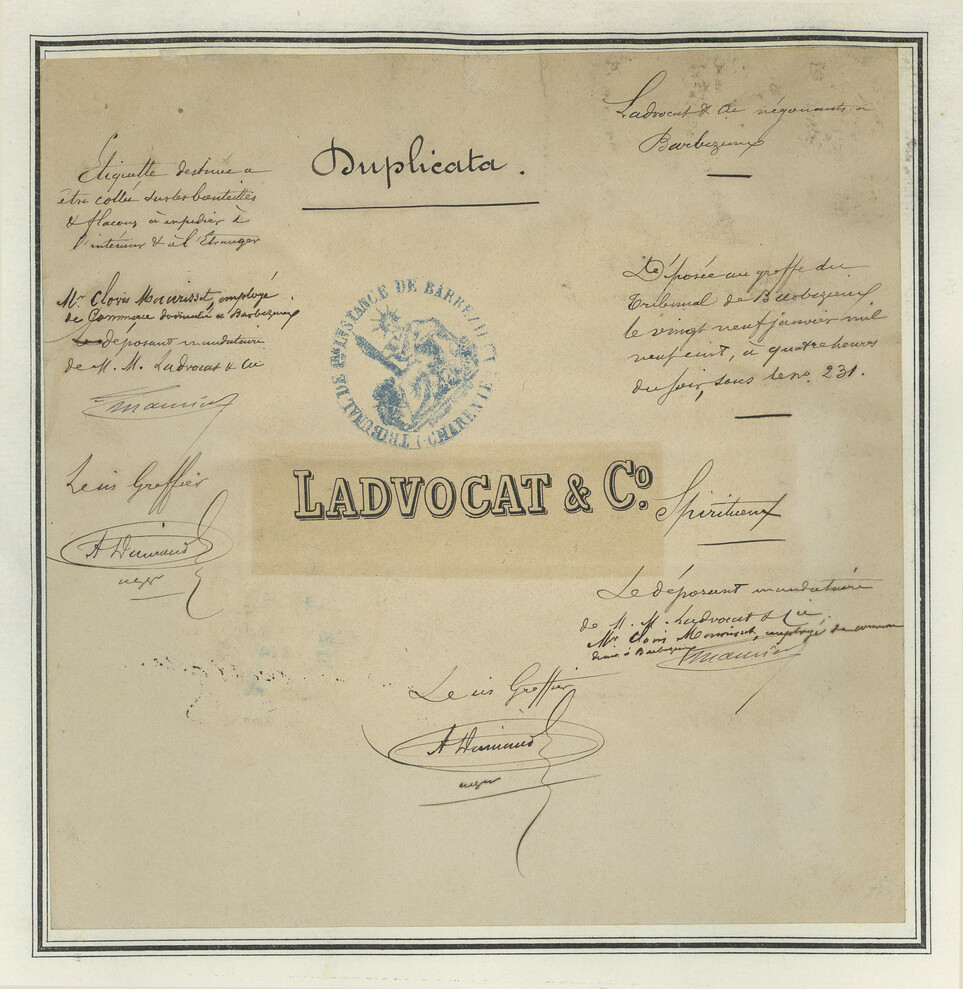 Duplicata.
Ladvocat & Cie négociants à
Barbezieux
Etiquette destinée à
être collée sur les bouteilles
& flacons à expédier à
l'intérieur & à l'Etranger
Mr Clovis Mourisset, employé
de Commerce domicilié à Barbezieux
déposant mandataire
de M. M. Ladvocat & Cie
Déposée au greffe du
Tribunal de Barbezieux
le vingt neuf janvier mil
neuf cent, à quatre heures
du soir, sous le no. 231.
TRIBUNAL DE 1ERE INSTANCE DE BARBEZIEUX
(CHARENTE)
LADVOCAT & Co.
Spiritueux
Greffier
Le déposant mandataire
de M. M. Ladvocat & Cie
Mr Clovis Mourisset, employé de commerce
à Barbezieux
Greffier